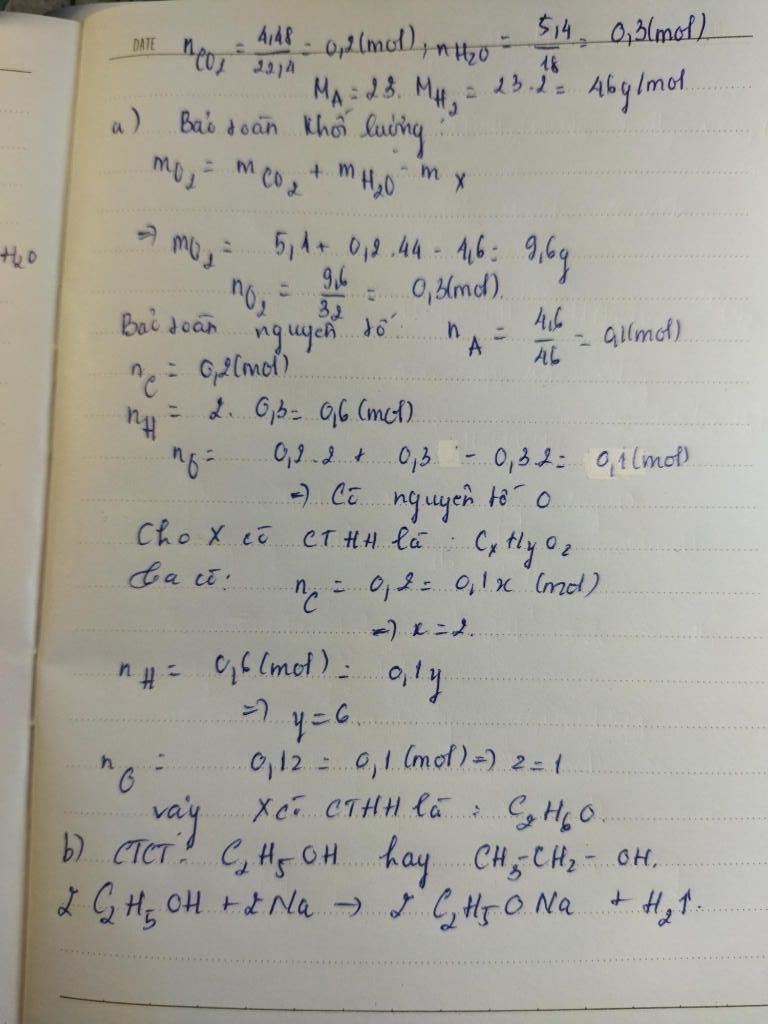 DATE n_CO₂ = 4,48/22,4 = 0,2(mol), n_H2O = 5,4/18 = 0,3(mol)
M_A = 23. M_H₂ = 23.2 = 46g/mol
a) Bảo toàn khối lượng:
m_O₂ = m_CO₂ + m_H₂O - m_X
+H₂O
=> m_O₂ = 5,4 + 0,2.44 - 4,6 = 9,6g
n_O₂ = 9,6/32 = 0,3(mol).
Bảo toàn nguyên tố: n_A = 4,6/46 = 0,1(mol)
n_C = 0,2(mol)
n_H = 2. 0,3 = 0,6(mol)
n_O = 0,2.2 + 0,3 - 0,3.2 = 0,1(mol)
=> Có nguyên tố O
Cho X có CTHH là: CxHyOz
Ta có: n_C = 0,2 = 0,1x (mol)
=> x = 2.
n_H = 0,6(mol) = 0,1y
=> y = 6.
n_O = 0,1z = 0,1(mol) => z = 1
vậy X có CTHH là: C₂H₆O.
b) CTCT: C₂H₅OH hay CH₃-CH₂-OH.
2 C₂H₅OH + 2Na → 2 C₂H₅ONa + H₂↑.